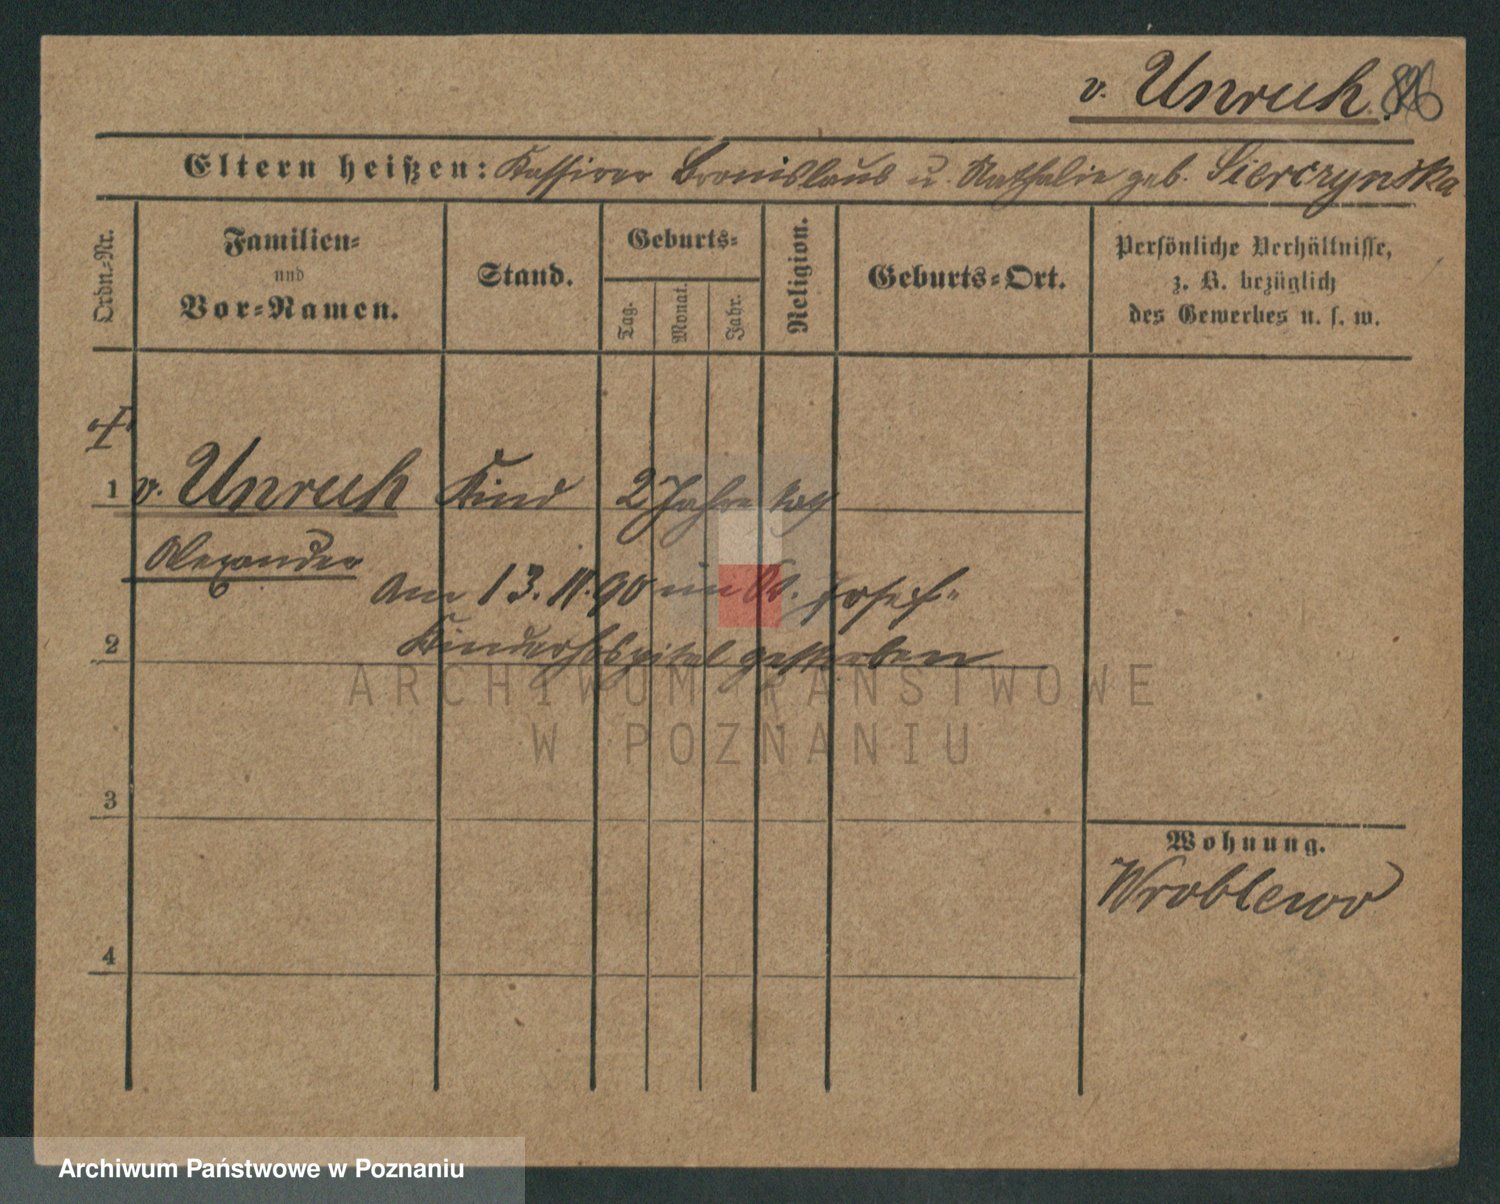 v. Unruh. 826
Eltern heißen: Kassirer Bronislaus u. Nathalie geb. Sierczynska
Ordn.-Nr.
Familien-
und
Vor-Namen.
Stand.
Geburts-
Tag.
Monat.
Jahr.
Religion.
Geburts-Ort.
Persönliche Verhältnisse,
z. B. bezüglich
des Gewerbes u. s. w.
1 v. Unruh Kind 2 Jahre kath
Alexander
Am 13. 11. 90 im St. Josef-
2 Kinderhospital gestorben
ARCHIWUM PAŃSTWOWE
W POZNANIU
3
Wohnung.
Wroblewo
4
Archiwum Państwowe w Poznaniu